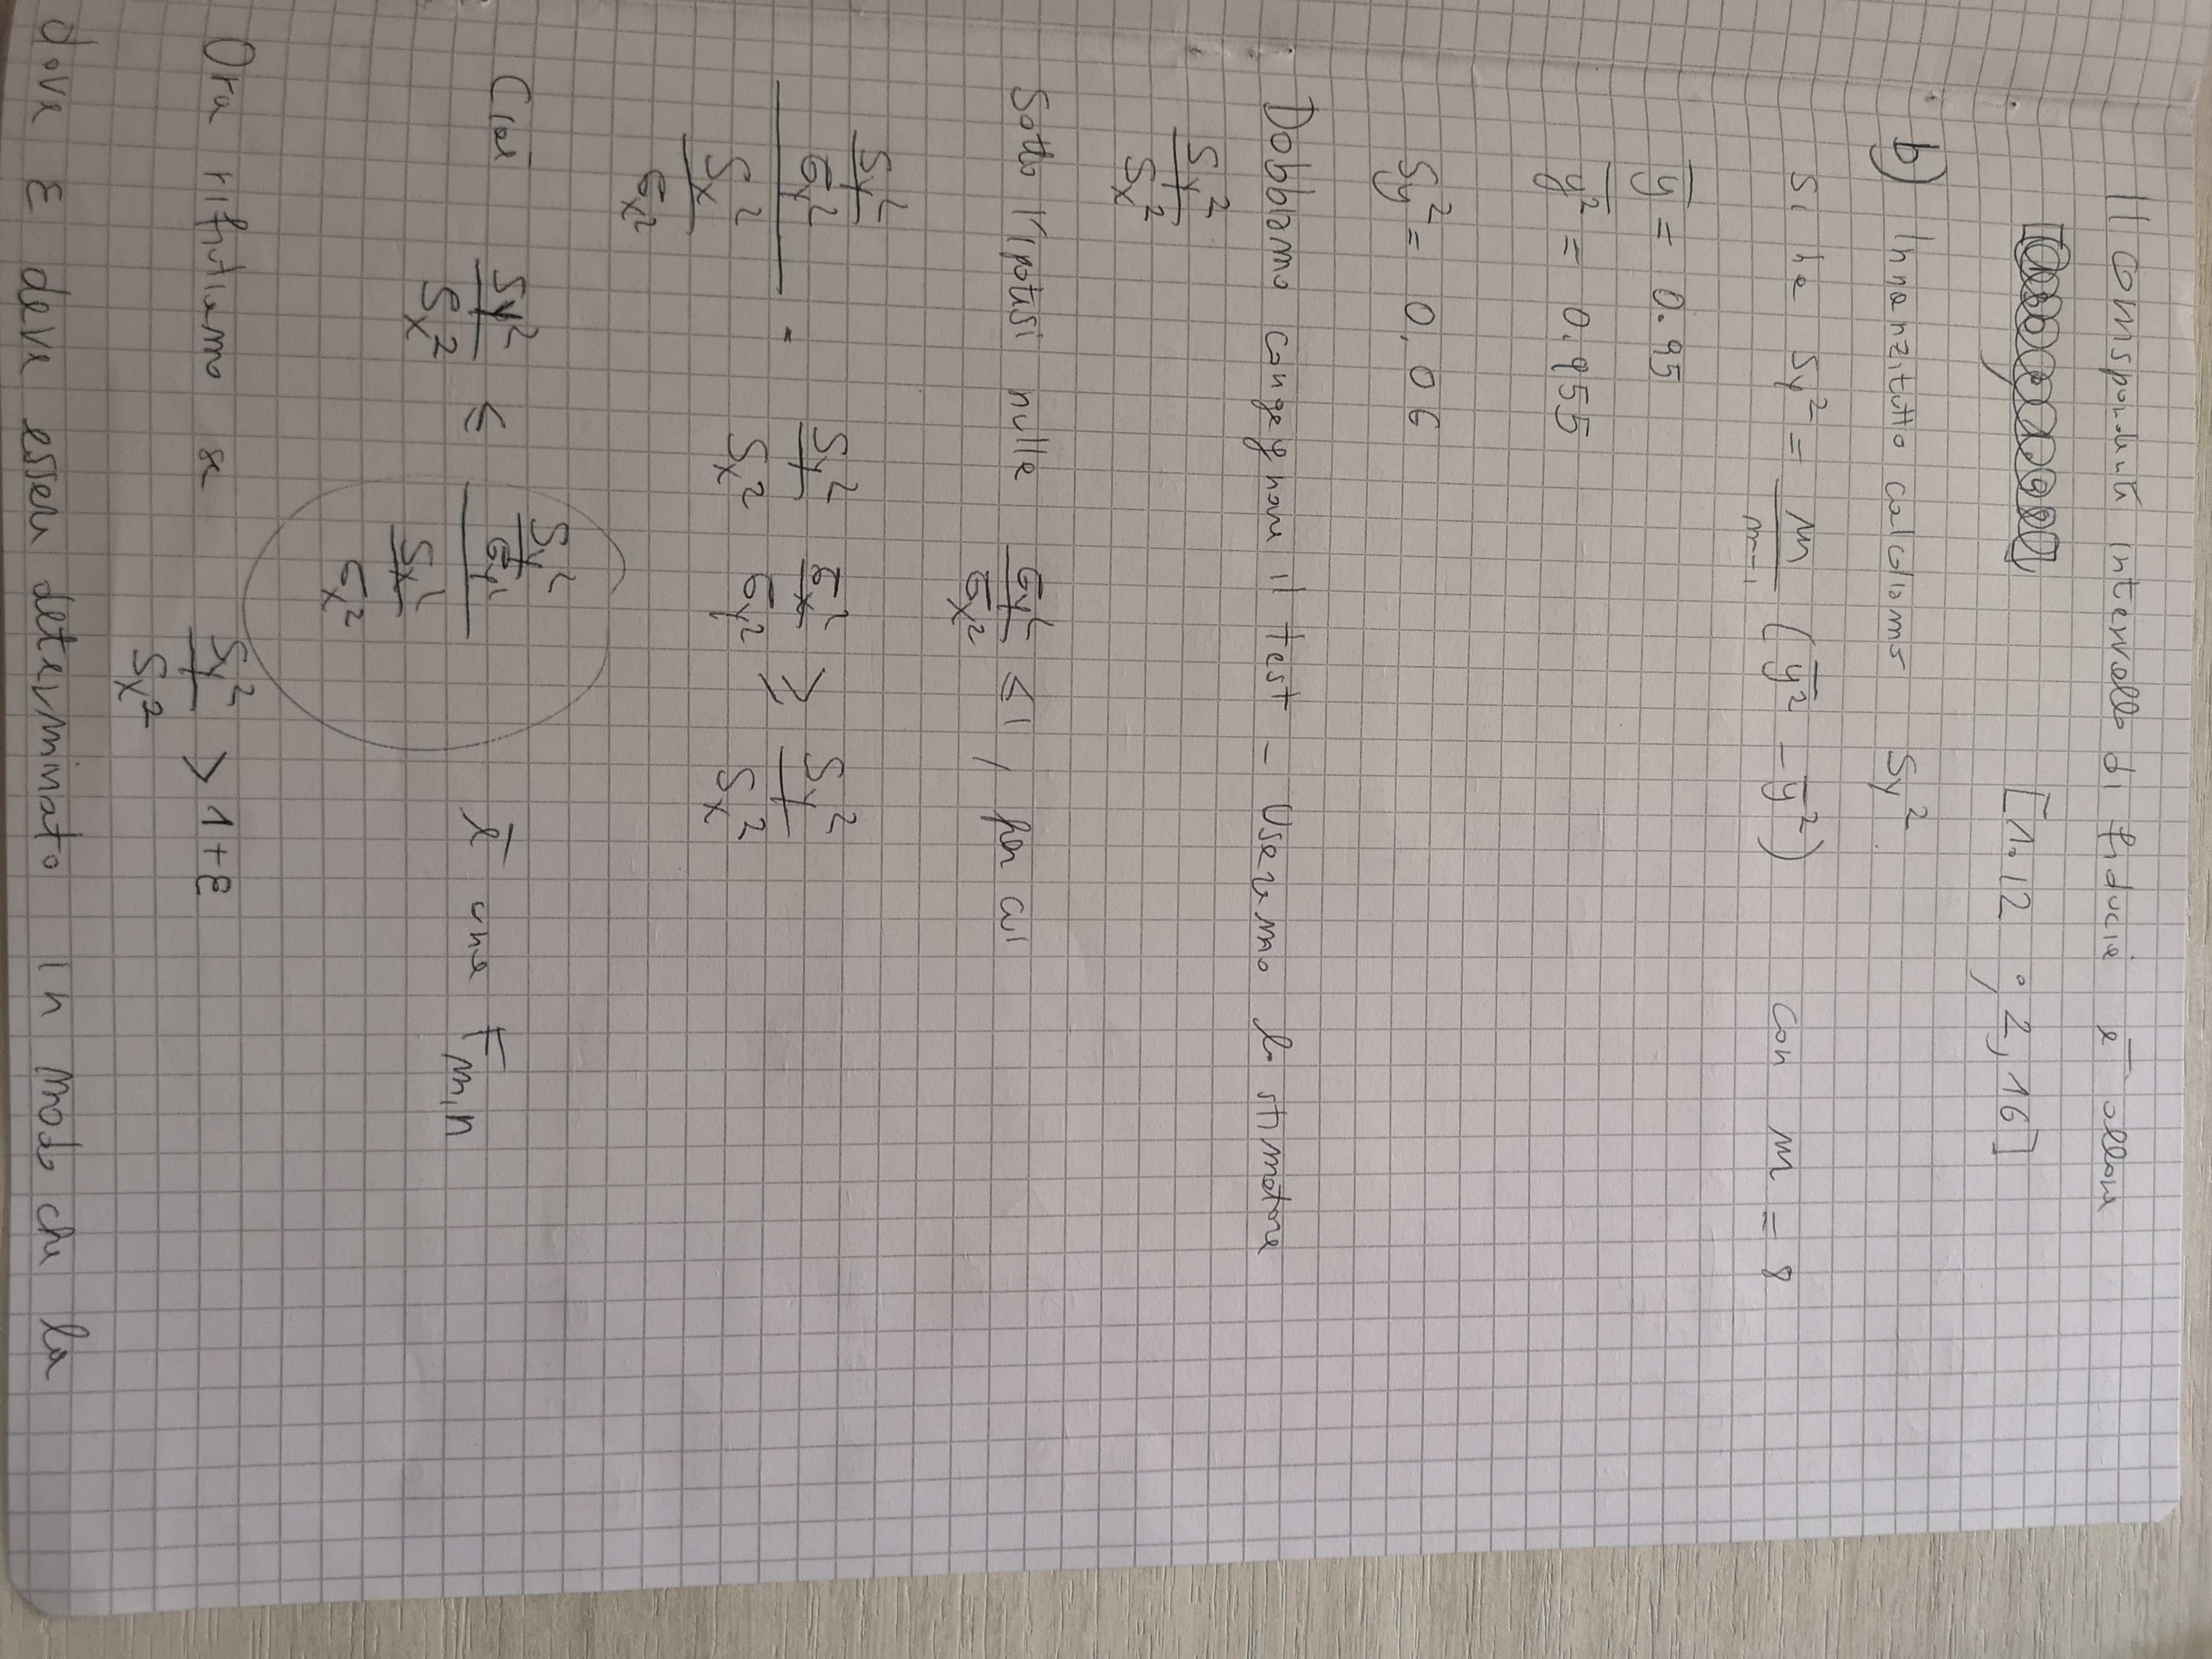 Il corrispondente intervallo di fiducia è allora
[1.12 ; 2,16]
b) Innanzitutto calcoliamo Sy²
Si ha Sy² = m/(m-1) (\overline{y²} - \overline{y}²) con m = 8
\overline{y} = 0.95
\overline{y²} = 0.955
Sy² = 0.06
Dobbiamo congegnare il test - Useremo lo stimatore
Sy²/Sx²
Sotto l'ipotesi nulla σy²/σx² ≤ 1, per cui
(Sy²/σy²)/(Sx²/σx²) = Sy²/Sx² σx²/σy² ≥ Sy²/Sx²
Cioè Sy²/Sx² ≤ (Sy²/σy²)/(Sx²/σx²) è una Fm,n
Ora rifiutiamo se Sy²/Sx² > 1+ε
dove ε deve essere determinato in modo che la